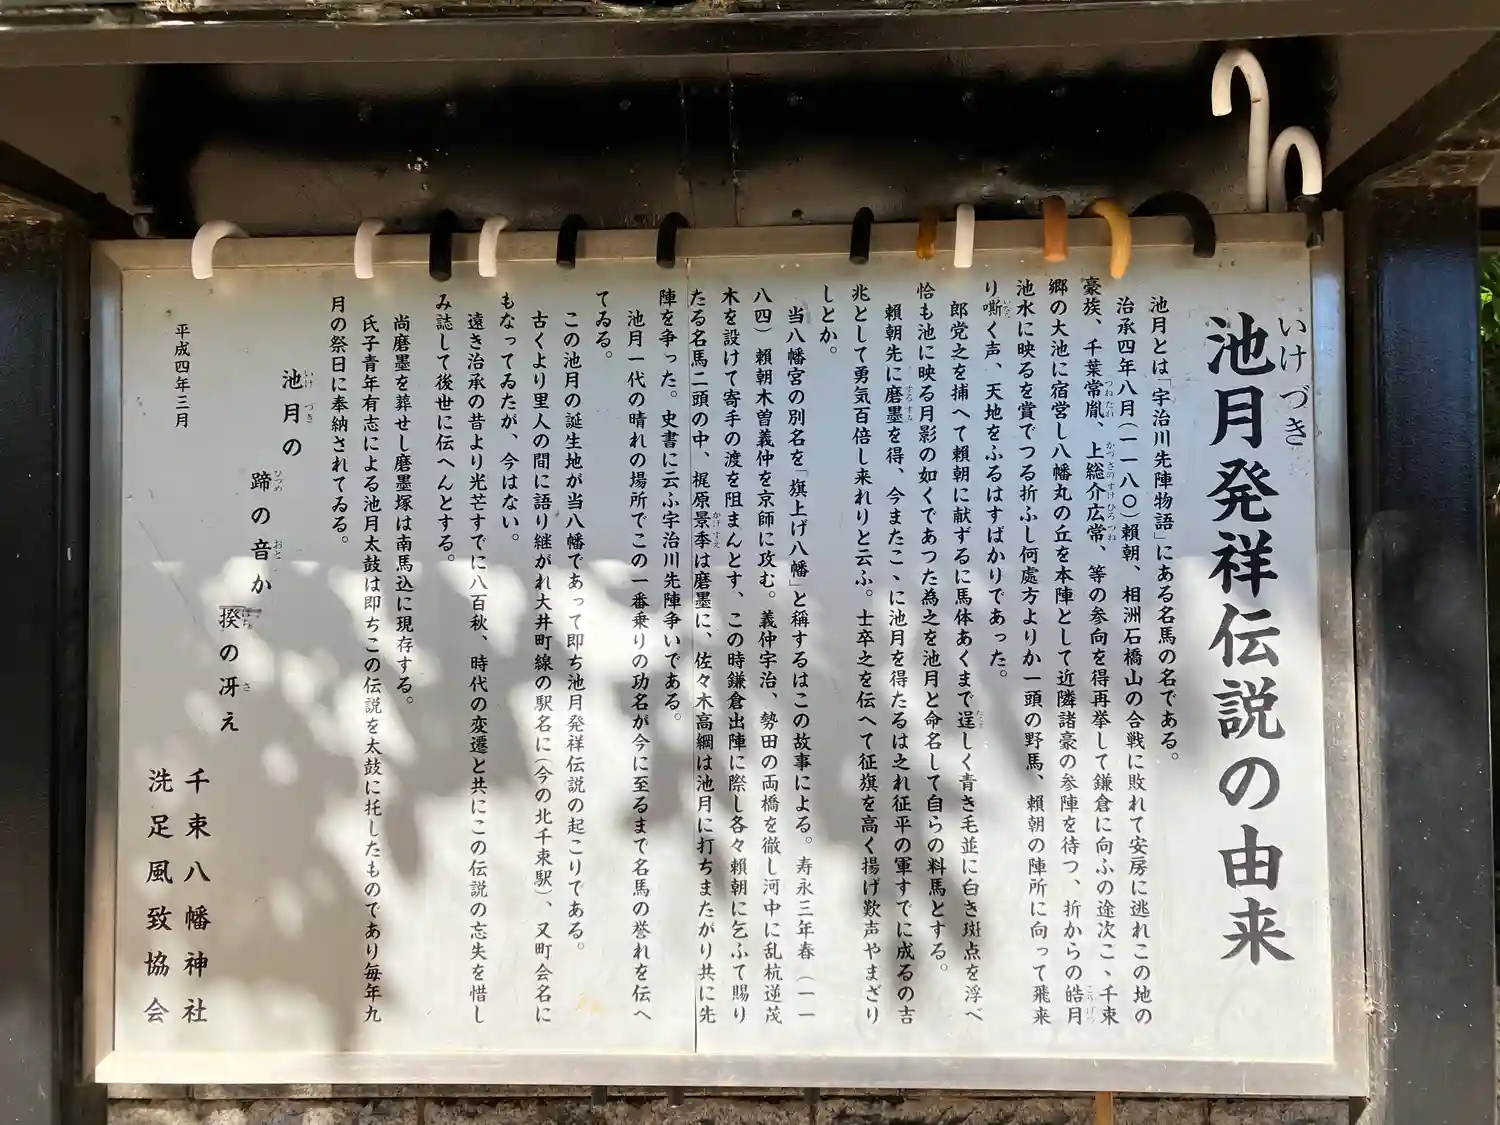 池月発祥伝説の由来
いけづき
池月とは「宇治川先陣物語」にある名馬の名である。
治承四年八月(一一八〇)頼朝、相洲石橋山の合戦に敗れて安房に逃れこの地の
豪族、千葉常胤、上総介広常、等の参向を得再挙して鎌倉に向ふの途次こゝ千束
つねたね
かづさのすけひろつね
郷の大池に宿営し八幡丸の丘を本陣として近隣諸豪の参陣を待つ、折からの皓月
こうげつ
池水に映るを賞でつる折ふし何處方よりか一頭の野馬、頼朝の陣所に向って飛来
り嘶く声、天地をふるはすばかりであった。
いなな
郎党之を捕へて頼朝に献ずるに馬体あくまで逞しく青き毛並に白き斑点を浮べ
たくま
恰も池に映る月影の如くであつた為之を池月と命名して自らの料馬とする。
頼朝先に磨墨を得、今またこゝに池月を得たるは之れ征平の軍すでに成るの吉
するすみ
兆として勇気百倍し来れりと云ふ。士卒之を伝へて征旗を高く揚げ歓声やまざり
しとか。
当八幡宮の別名を「旗上げ八幡」と稱するはこの故事による。寿永三年春(一一
八四)頼朝木曽義仲を京師に攻む。義仲宇治、勢田の両橋を徹し河中に乱杭逆茂
木を設けて寄手の渡を阻まんとす、この時鎌倉出陣に際し各々頼朝に乞ふて賜り
たる名馬二頭の中、梶原景季は磨墨に、佐々木高綱は池月に打ちまたがり共に先
かげすえ
陣を争った。史書に云ふ宇治川先陣争いである。
池月一代の晴れの場所でこの一番乗りの功名が今に至るまで名馬の誉れを伝へ
てゐる。
この池月の誕生地が当八幡であって即ち池月発祥伝説の起こりである。
古くより里人の間に語り継がれ大井町線の駅名に(今の北千束駅)、又町会名に
もなってゐたが、今はない。
遠き治承の昔より光芒すでに八百秋、時代の変遷と共にこの伝説の忘失を惜し
み誌して後世に伝へんとする。
尚磨墨を葬せし磨墨塚は南馬込に現存する。
氏子青年有志による池月太鼓は即ちこの伝説を太鼓に托したものであり毎年九
月の祭日に奉納されてゐる。
池月の
いけづき
蹄の音か
ひづめ
おと
揆の冴え
ばち
さ
平成四年三月
千束八幡神社
洗足風致協会